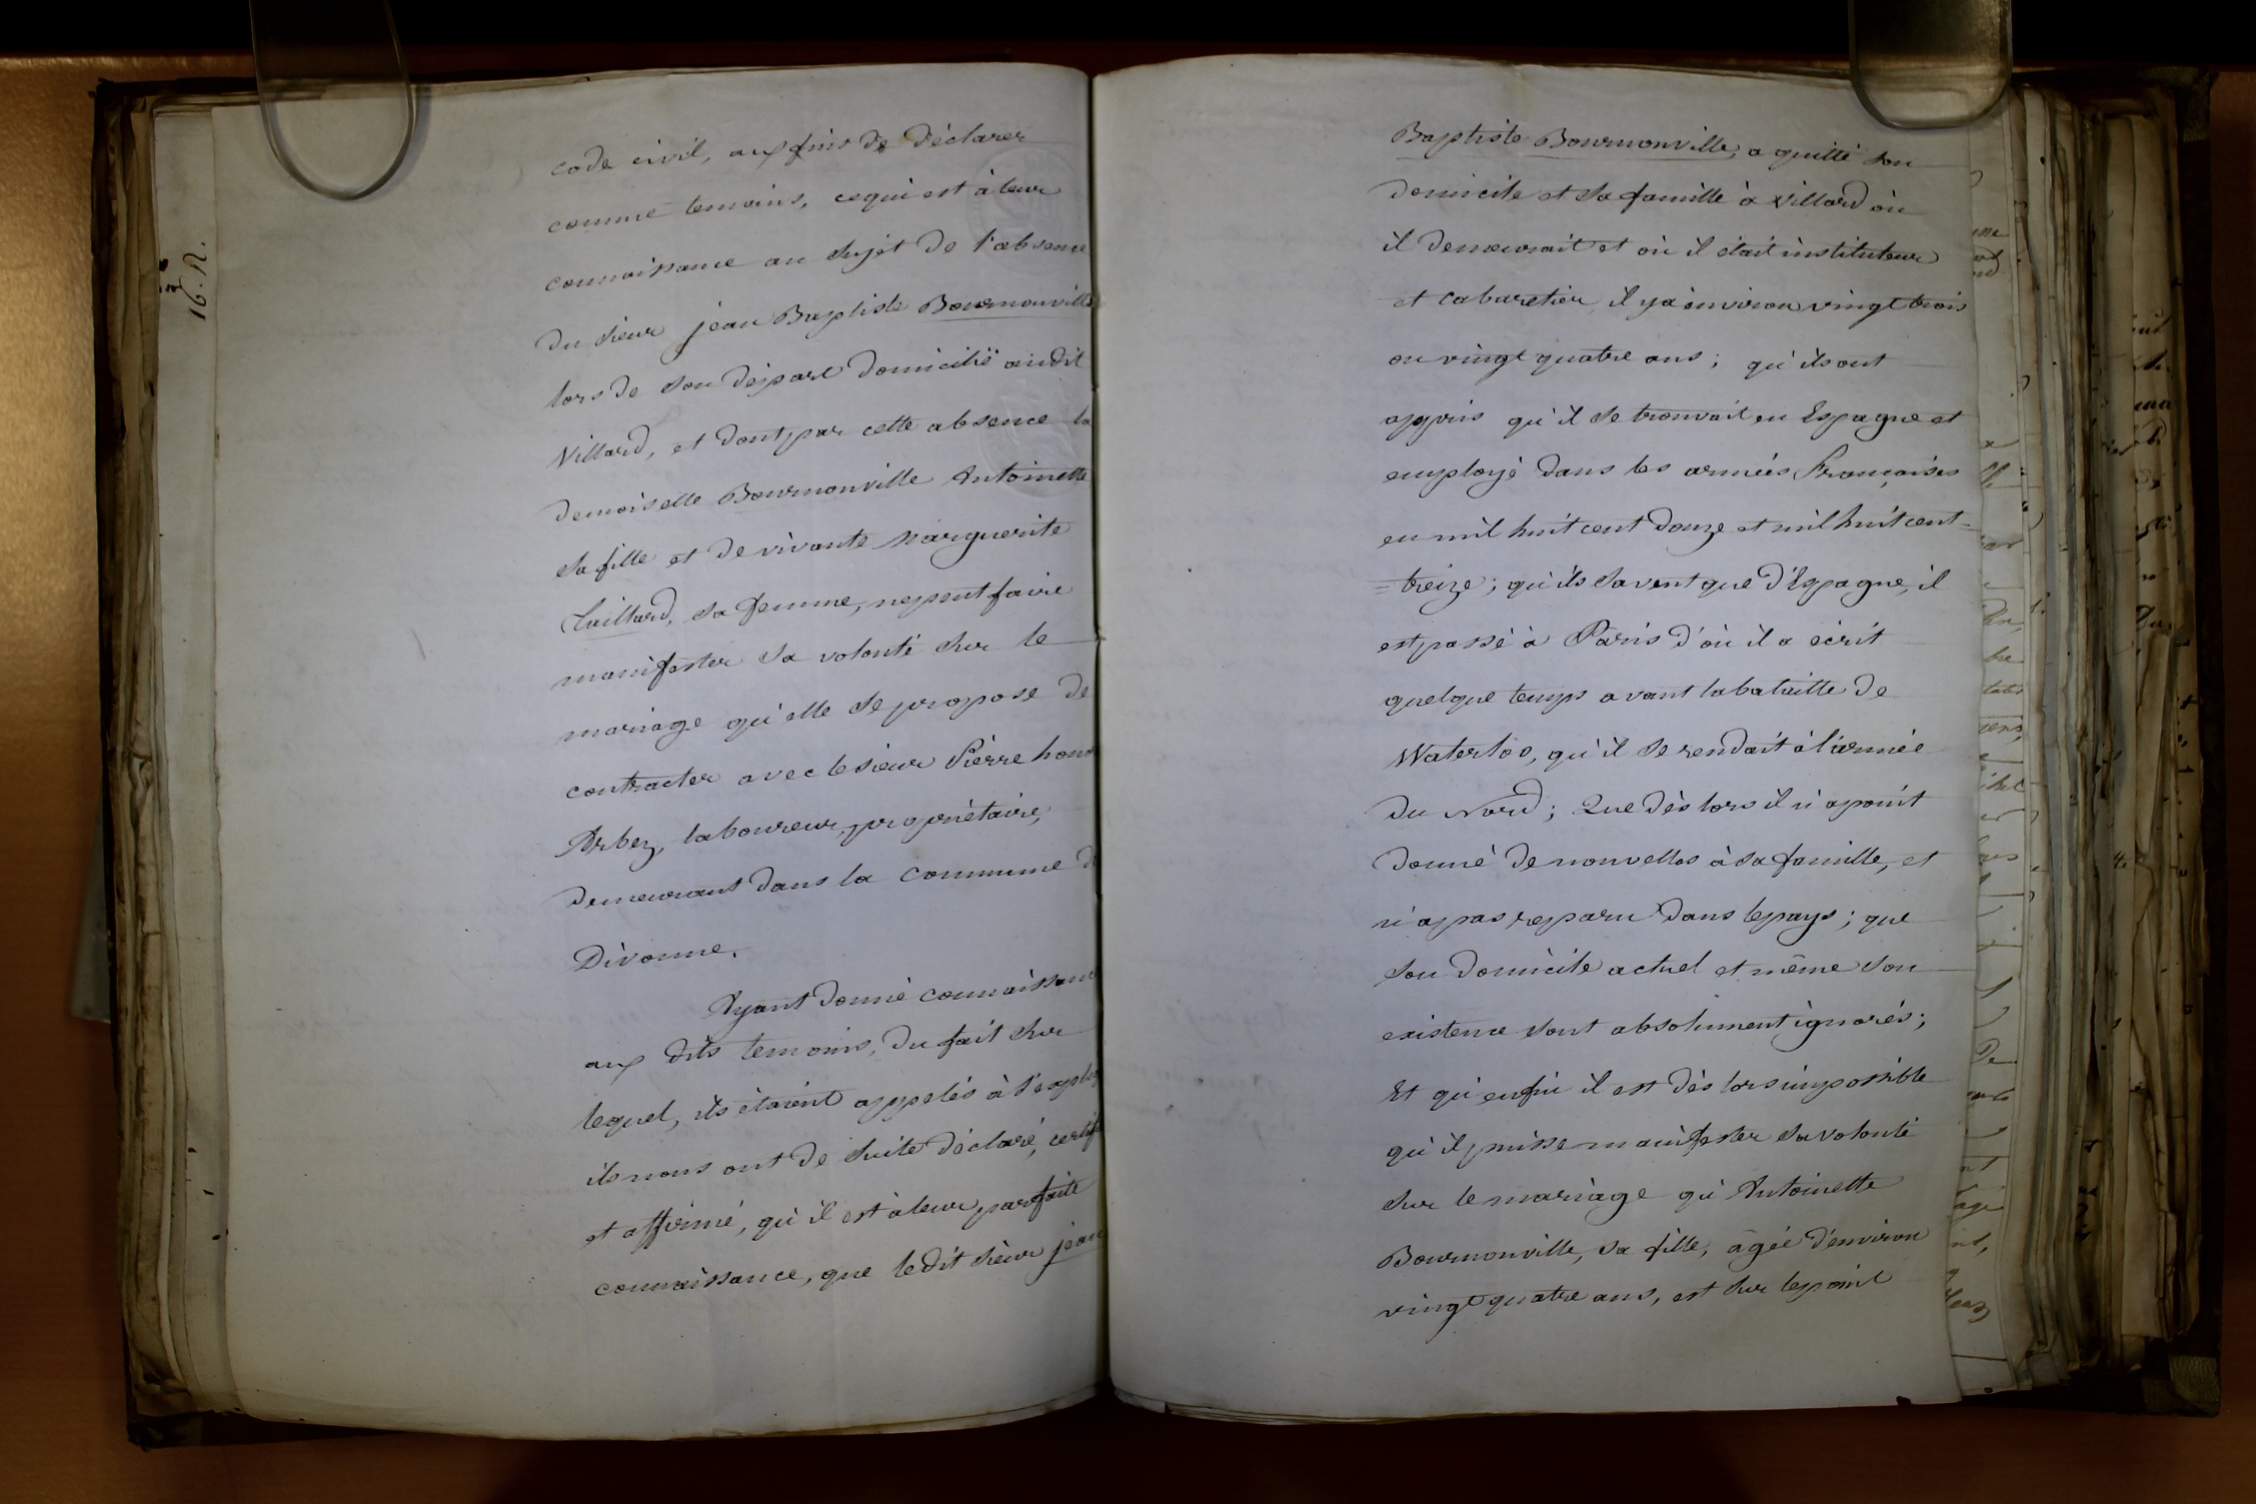 16. R.
code civil, aux fins de déclarer
comme temoins, cequi est à leur
connaissance au sujet de l'absence
du sieur jean Baptiste Bournonville
lors de son départ domicilié audit
Villard, et dont par cette absence la
demoiselle Bournonville Antoinette
sa fille et de vivante Marguerite
sa femme, ne peut faire
manifester sa volonté sur le
mariage qu'elle se propose de
contracter avec le sieur Pièrre
Arbez, laboureur, propriétaire,
demeurant dans la commune d
Divonne.
Ayant donné connaissan
aux dits temoins, du fait sur
lequel, ils étaient appelés à s'expliq
ils nous ont de suite déclaré, certif
et affirmé, qu'il est à leur parfaite
connaissance, que le dit sieur jean
Baptiste Bournonville, a quitté son
domicile et sa famille à Villard où
il demeurait et où il était instituteur
et cabaretier, il y a environ vingt trois
ou vingt quatre ans ; qu'ils ont
appris qu'il se trouvait en Espagne et
employé dans les armées Françaises
en mil huit cent douze et mil huit cent=
=treize ; qu'ils savent que d'Espagne, il
est passé à Paris d'où il a écrit
quelque temps avant la bataille de
Waterloo, qu'il se rendait à l'armée
du Nord ; Que dès lors il n'a point
donné de nouvelles à sa famille, et
n'a pas reparu dans le pays ; que
son domicile actuel et même son
existence sont absolument ignorés ;
Et qu'enfin il est dès lors impossible
qu'il puisse manifester sa volonté
sur le mariage qu'Antoinette
Bournonville, sa fille, âgée d'environ
vingt quatre ans, est sur le point